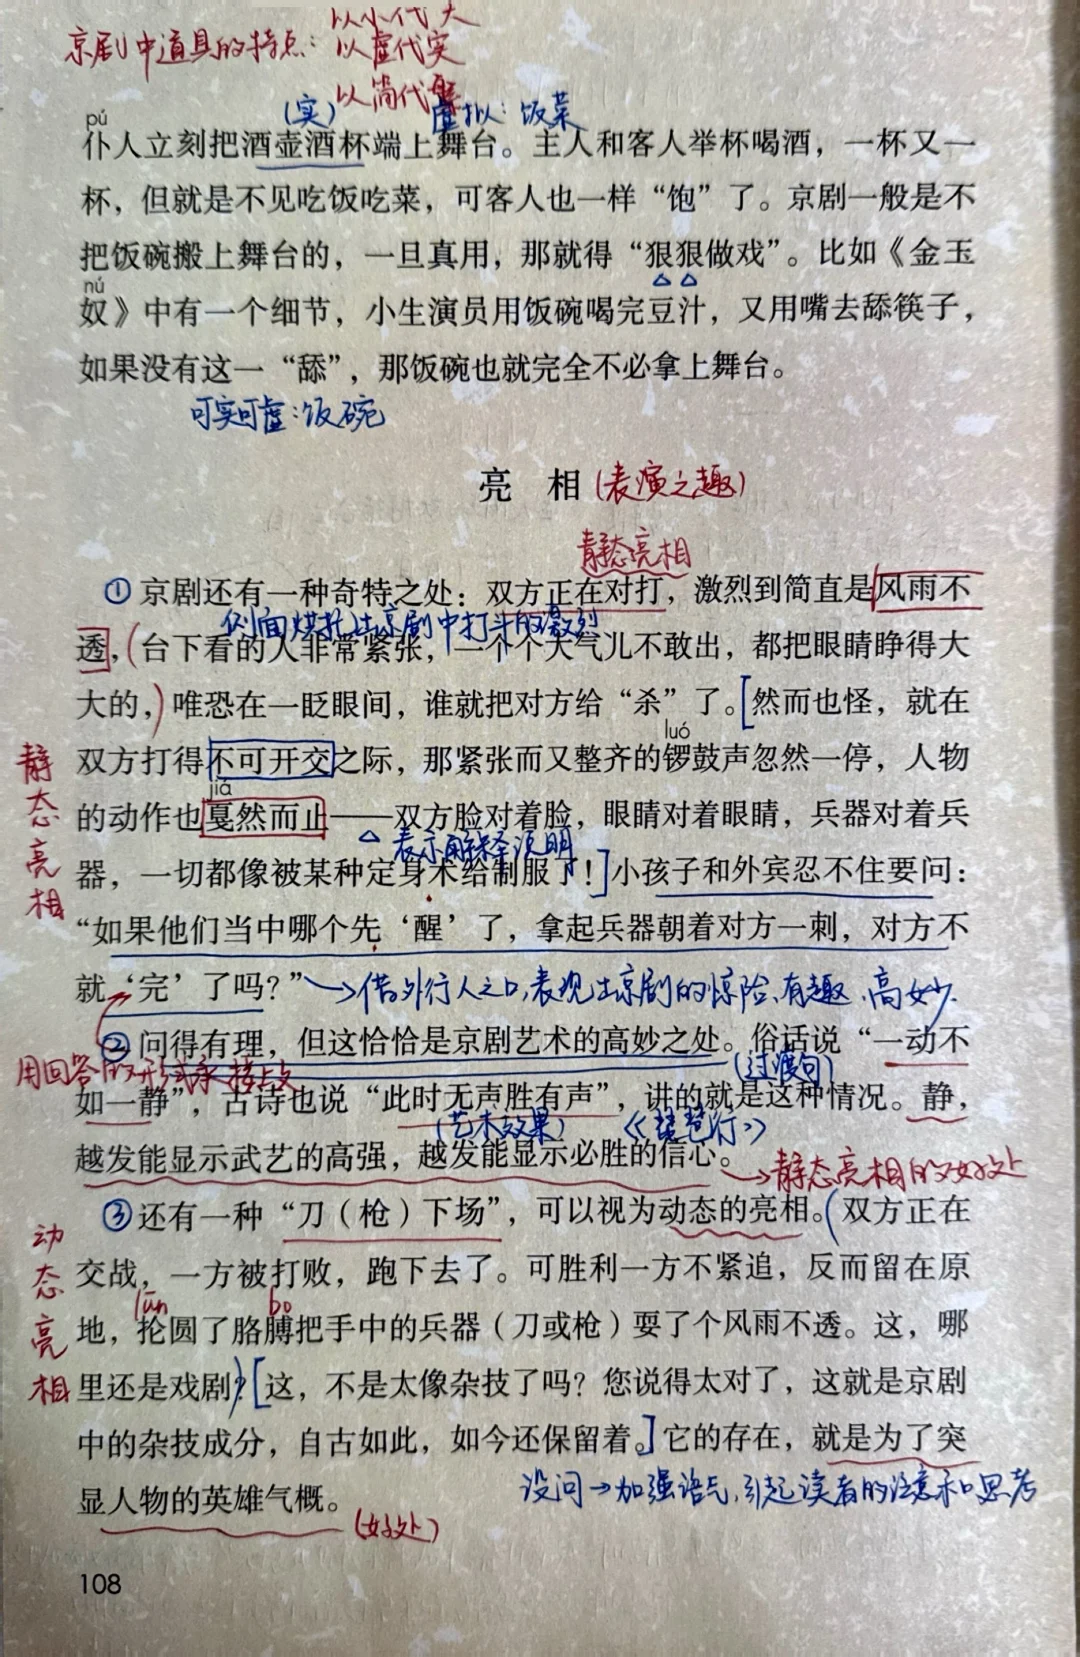 以小代大
京剧中道具的特点：以虚代实
以简代繁
(实) 虚拟：饭菜
pú
仆人立刻把酒壶酒杯端上舞台。主人和客人举杯喝酒，一杯又一
杯，但就是不见吃饭吃菜，可客人也一样“饱”了。京剧一般是不
把饭碗搬上舞台的，一旦真用，那就得“狠狠做戏”。比如《金玉
nú
奴》中有一个细节，小生演员用饭碗喝完豆汁，又用嘴去舔筷子，
如果没有这一“舔”，那饭碗也就完全不必拿上舞台。
可实可虚：饭碗
亮 相 (表演之趣)
静态亮相
①京剧还有一种奇特之处：双方正在对打，激烈到简直是风雨不
侧面烘托出京剧中打斗的激烈
透，(台下看的人非常紧张，一个个大气儿不敢出，都把眼睛睁得大
大的，)唯恐在一眨眼间，谁就把对方给“杀”了。[然而也怪，就在
luó
双方打得不可开交之际，那紧张而又整齐的锣鼓声忽然一停，人物
jiá
的动作也戛然而止——双方脸对着脸，眼睛对着眼睛，兵器对着兵
表示解释说明
静态亮相
器，一切都像被某种定身术给制服了！]小孩子和外宾忍不住要问：
“如果他们当中哪个先‘醒’了，拿起兵器朝着对方一刺，对方不
就‘完’了吗？”→借外行人之口，表现出京剧的惊险、有趣、高妙。
②问得有理，但这恰恰是京剧艺术的高妙之处。俗话说“一动不
用回答的形式承接上文 (过渡句)
如一静”，古诗也说“此时无声胜有声”，讲的就是这种情况。静，
(艺术效果) 《琵琶行》
越发能显示武艺的高强，越发能显示必胜的信心。→静态亮相的好处
③还有一种“刀（枪）下场”，可以视为动态的亮相。(双方正在
动态亮相
交战，一方被打败，跑下去了。可胜利一方不紧追，反而留在原
lūn bo
地，抡圆了胳膊把手中的兵器（刀或枪）耍了个风雨不透。这，哪
里还是戏剧？)[这，不是太像杂技了吗？您说得太对了，这就是京剧
中的杂技成分，自古如此，如今还保留着。]它的存在，就是为了突
设问→加强语气，引起读者的注意和思考
显人物的英雄气概。
(好处)
108